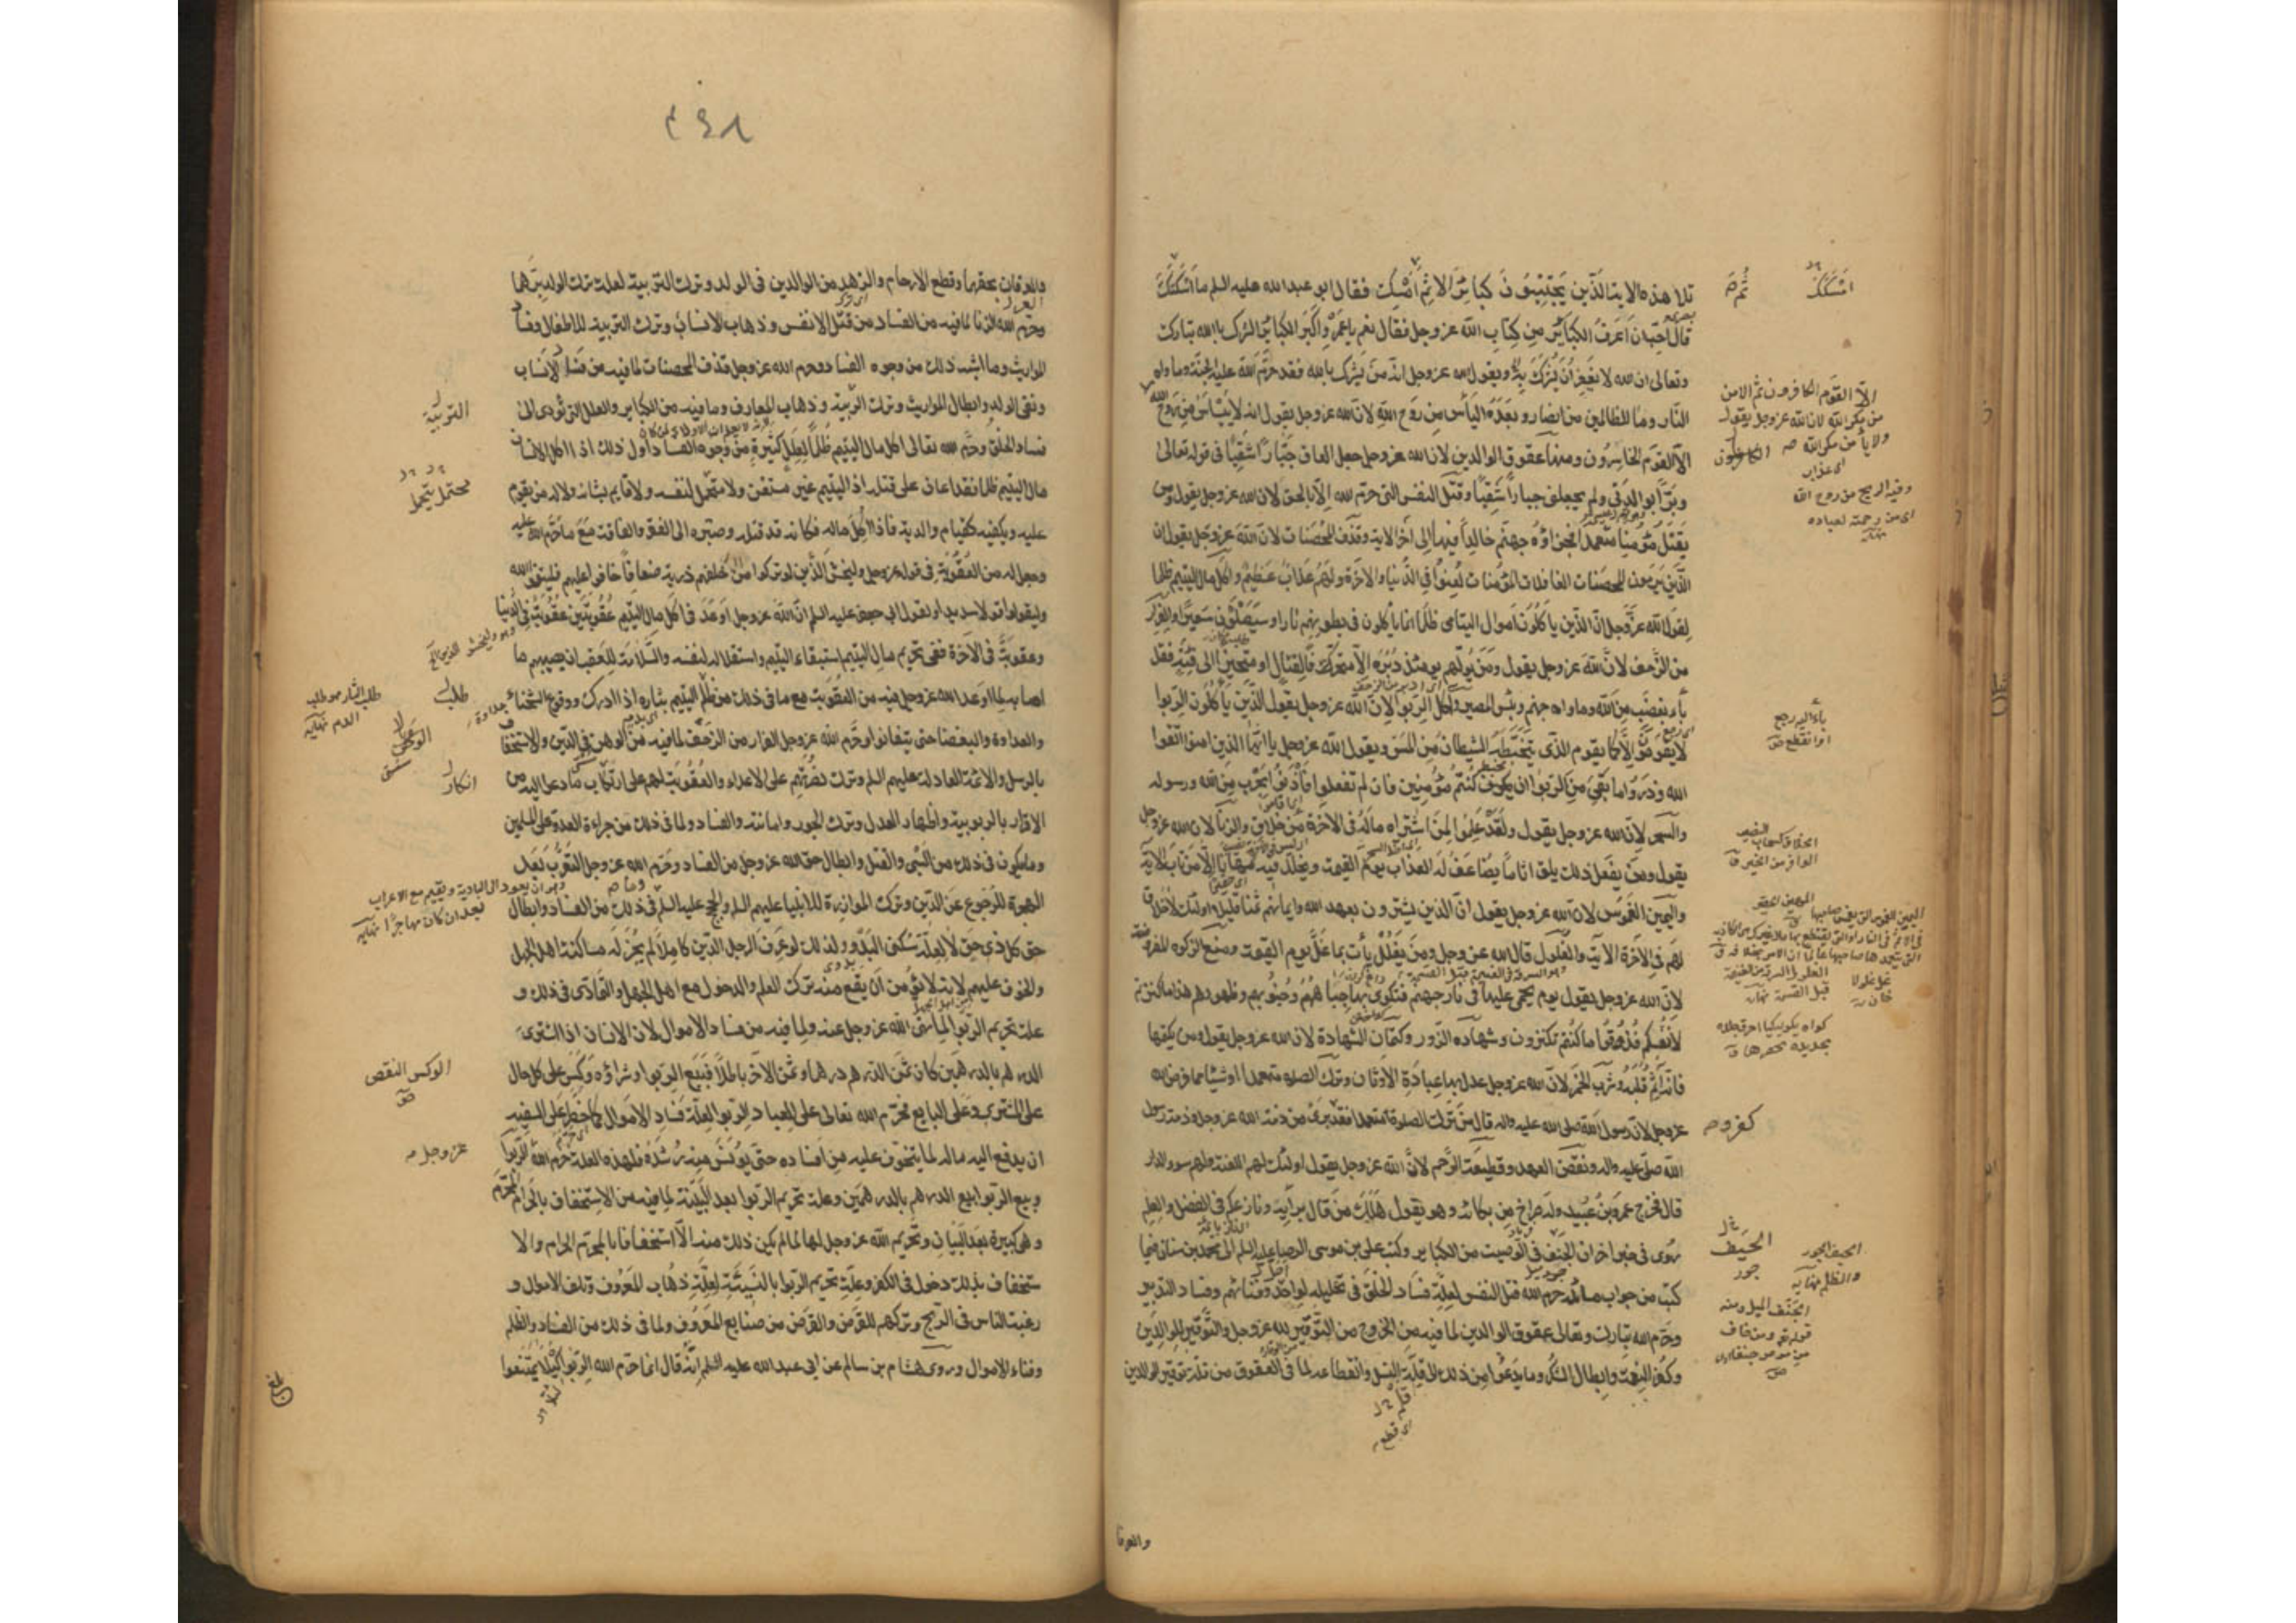 تلا هذه الاية الَّذِينَ يَجْتَنِبُونَ كَبَائِرَ الاِثْمِ اَمْسَكَ فقال ابو عبد الله عليه السلم ما اَسْكَتَكَ
قال احِبّ ان اَعرفَ الكبائر من كتاب الله عز وجل فقال نعم يا عَمرو اكبر الكبائر الشرك بالله تبارك
وتعالى ان الله لا يغفر ان يشرك به ويقول الله عز وجل انه من يشرك بالله فقد حرم الله عليه الجنة وماواه
النار وما للظالمين من انصار وبعده اليأس من روح الله لان الله عز وجل يقول انه لا يياس من روح الله
الا القوم الخاسرون ومنها عقوق الوالدين لان الله عز وجل جعل العاق جبارا شقيا في قوله تعالى
وبرا بوالدتي ولم يجعلني جبارا شقيا وقتل النفس التي حرم الله الا بالحق لان الله عز وجل يقول ومن
يقتل مؤمنا متعمدا فجزاؤه جهنم خالدا فيها الى آخر الاية وقذف المحصنات لان الله عز وجل يقول ان
الذين يرمون المحصنات الغافلات المؤمنات لعنوا في الدنيا والاخرة ولهم عذاب عظيم واكل مال اليتيم ظلما
لقول الله عز وجل ان الذين ياكلون اموال اليتامى ظلما انما ياكلون في بطونهم نارا وسيصلون سعيرا والفرار
من الزحف لان الله عز وجل يقول ومن يولهم يومئذ دبره الا متحرفا لقتال او متحيزا الى فئة فقد
باء بغضب من الله وماواه جهنم وبئس المصير واكل الربوا لان الله عز وجل يقول الذين ياكلون الربوا
لا يقومون الا كما يقوم الذي يتخبطه الشيطان من المس ويقول الله عز وجل يا ايها الذين امنوا اتقوا
الله وذروا ما بقي من الربوا ان كنتم مؤمنين فان لم تفعلوا فأذنوا بحرب من الله ورسوله
والسحر لان الله عز وجل يقول ولقد علموا لمن اشتراه ماله في الاخرة من خلاق والزنا لان الله عز وجل
يقول ومن يفعل ذلك يلق اثاما يضاعف له العذاب يوم القيمة ويخلد فيه مهانا الا من تاب الاية
واليمين الغموس لان الله عز وجل يقول ان الذين يشترون بعهد الله وايمانهم ثمنا قليلا اولئك لا خلاق
لهم في الاخرة الاية والغلول قال الله عز وجل ومن يغلل يأت بما غل يوم القيمة ومنع الزكوة المفروضة
لان الله عز وجل يقول يوم يحمى عليها في نار جهنم فتكوى بها جباههم وجنوبهم وظهورهم هذا ما كنزتم
لانفسكم فذوقوا ما كنتم تكنزون وشهاده الزور وكتمان الشهادة لان الله عز وجل يقول ومن يكتمها
فانه آثم قلبه وشرب الخمر لان الله عز وجل عدل بها عبادة الاوثان وترك الصلوه متعمدا او شيئا مما فرض الله
عز وجل لان رسول الله صلى الله عليه واله قال من ترك الصلوة متعمدا فقد برئ من ذمة الله عز وجل وذمة رسول
الله صلى عليه واله ونقض العهد وقطيعة الرحم لان الله عز وجل يقول اولئك لهم اللعنة ولهم سوء الدار
قال فخرج عمرو بن عبيد وله صراخ من بكائه وهو يقول هلك من قال برأيه ونازعكم في الفضل والعلم
روى في خبر اخر ان الحيف في الوصية من الكباير وكتب علي بن موسى الرضا عليه السلم الى محمد بن سنان فيما
كتب من جواب مسائله حرم الله قتل النفس لعلة فساد الخلق في تحليله لو احل وفنائهم وفساد التدبير
وحرم الله تبارك وتعالى عقوق الوالدين لما فيه من الخروج من التوقير لله عز وجل والتوقير للوالدين
وكفر النعمة وابطال الشكر وما يدعو من ذلك الى قلة النسل وانقطاعه لما في العقوق من قلة توقير الوالدين
والعرفا
اَسْكَتَكَ
ثُمَّ
الا القوم الكافرون ثم الامن
من مكر الله لان الله عز وجل يقول
ولا يأمن مكر الله
وفيه الريح من روح الله
اى من رحمته لعباده
نهايه
باء اليه رجع
او انقطع ص
الخلاق كسحاب النصيب
الوافر من الخير ق
الحيف
جور
الحيف الجور
والظلم نهايه
الجنف الميل ومنه
قوله تع ومن خاف
من موص جنفا
ص
٢٩٨
والعرفان بحقهما وقطع الارحام والزهد من الوالدين في الولد وترك التربية لعلة ترك الولد برهما
وحرم الله الزنا لما فيه من الفساد من قتل الانفس وذهاب الانساب وترك التربية للاطفال وفساد
المواريث وما اشبه ذلك من وجوه الفساد وحرم الله عز وجل قذف المحصنات لما فيه من فساد الانساب
ونفى الولد وابطال المواريث وترك التربية وذهاب المعارف وما فيه من الكباير والعلل التي تؤدى الى
فساد الخلق وحرم الله تعالى اكل مال اليتيم ظلما لعلل كثيرة من وجوه الفساد اول ذلك اذا اكل الانسان
مال اليتيم ظلما فقد اعان على قتله اذ اليتيم غير مستغن ولا متحمل لنفسه ولا قايم بشانه ولا له من يقوم
عليه ويكفيه كقيام والديه فاذا اكل ماله فكانه قد قتله وصيره الى الفقر والفاقة مع ما حرم الله عليه
وجعل له من العقوبة في قوله عز وجل وليخش الذين لو تركوا من خلفهم ذرية ضعافا خافوا عليهم فليتقوا الله
وليقولوا قولا سديدا ولقول ابي جعفر عليه السلم ان الله عز وجل اوعد في اكل مال اليتيم عقوبتين عقوبة في الدنيا
وعقوبة في الآخرة ففى تحريم مال اليتيم استبقاء اليتيم واستقلاله لنفسه والسلامة للعقب ان يصيبهم ما
اصابه لما اوعد الله عز وجل فيه من العقوبة مع ما في ذلك من طلب اليتيم بثاره اذا ادرك ووقوع الشحناء
والعداوة والبغضاء حتى يتفانوا وحرم الله عز وجل الفرار من الزحف لما فيه من الوهن في الدين والاستخفاف
بالرسل والائمة العادلة عليهم السلم وترك نصرتهم على الاعداء والعقوبة لهم على ما دعوا اليه من
الاقرار بالربوبية واظهار العدل وترك الجور واماتته والفساد ولما في ذلك من جراءة العدو على المسلمين
وما يكون في ذلك من السبى والقتل وابطال حق الله عز وجل من الفساد وحرم الله عز وجل التعرب بعد
الهجرة للرجوع عن الدين وترك الموازرة للانبياء عليهم السلم والحجج عليه السلم وما في ذلك من الفساد وابطال
حق كل ذى حق لا لعلة سكنى البدو ولذلك لو عرف الرجل الدين كاملا لم يجز له مساكنة اهل الجهل
والخوف عليهم لانه لا يؤمن أن يقع منه ترك العلم والدخول مع اهل الجهل والتمادى في ذلك و
علة تحريم الربوا لما نهى الله عز وجل عنه ولما فيه من فساد الاموال لان الانسان اذا اشترى
الدرهم بالدرهمين كان ثمن الدرهم درهما وثمن الآخر باطلا فبيع الربوا وشراؤه وكس على كل حال
على المشترى وعلى البايع فحرم الله تعالى على العباد الربوا لعلة فساد الاموال كما حظر على السفيه
ان يدفع اليه ماله لما يتخوف عليه من افساده حتى يؤنس منه رشده فلهذه العلة حرم الله الربوا
وبيع الربوا بيع الدرهم بالدرهمين وعلة تحريم الربوا بعد البينة لما فيه من الاستخفاف بالحرام المحرم
وهى كبيرة بعد البيان وتحريم الله عز وجل لها لما لم يكن ذلك منه الا استخفافا بالمحرم الحرام والا
ستخفاف بذلك دخول في الكفر وعلة تحريم الربوا بالنسيئة لعلة ذهاب المعروف وتلف الاموال و
رغبة الناس في الربح وتركهم للقرض والقرض من صنايع المعروف ولما في ذلك من الفساد والظلم
وفناء الاموال وروى هشام بن سالم عن ابي عبد الله عليه السلم انه قال انما حرم الله الربوا كيلا يمتنعوا
التربية
محتمل
يتحمل
طلب
طلب الثار هو طلب
الدم نهايه
انكار
وهو ان يعود الى البادية ويقيم مع الاعراب
بعد ان كان مهاجرا نهايه
الوكس النقص
ص
عز وجل